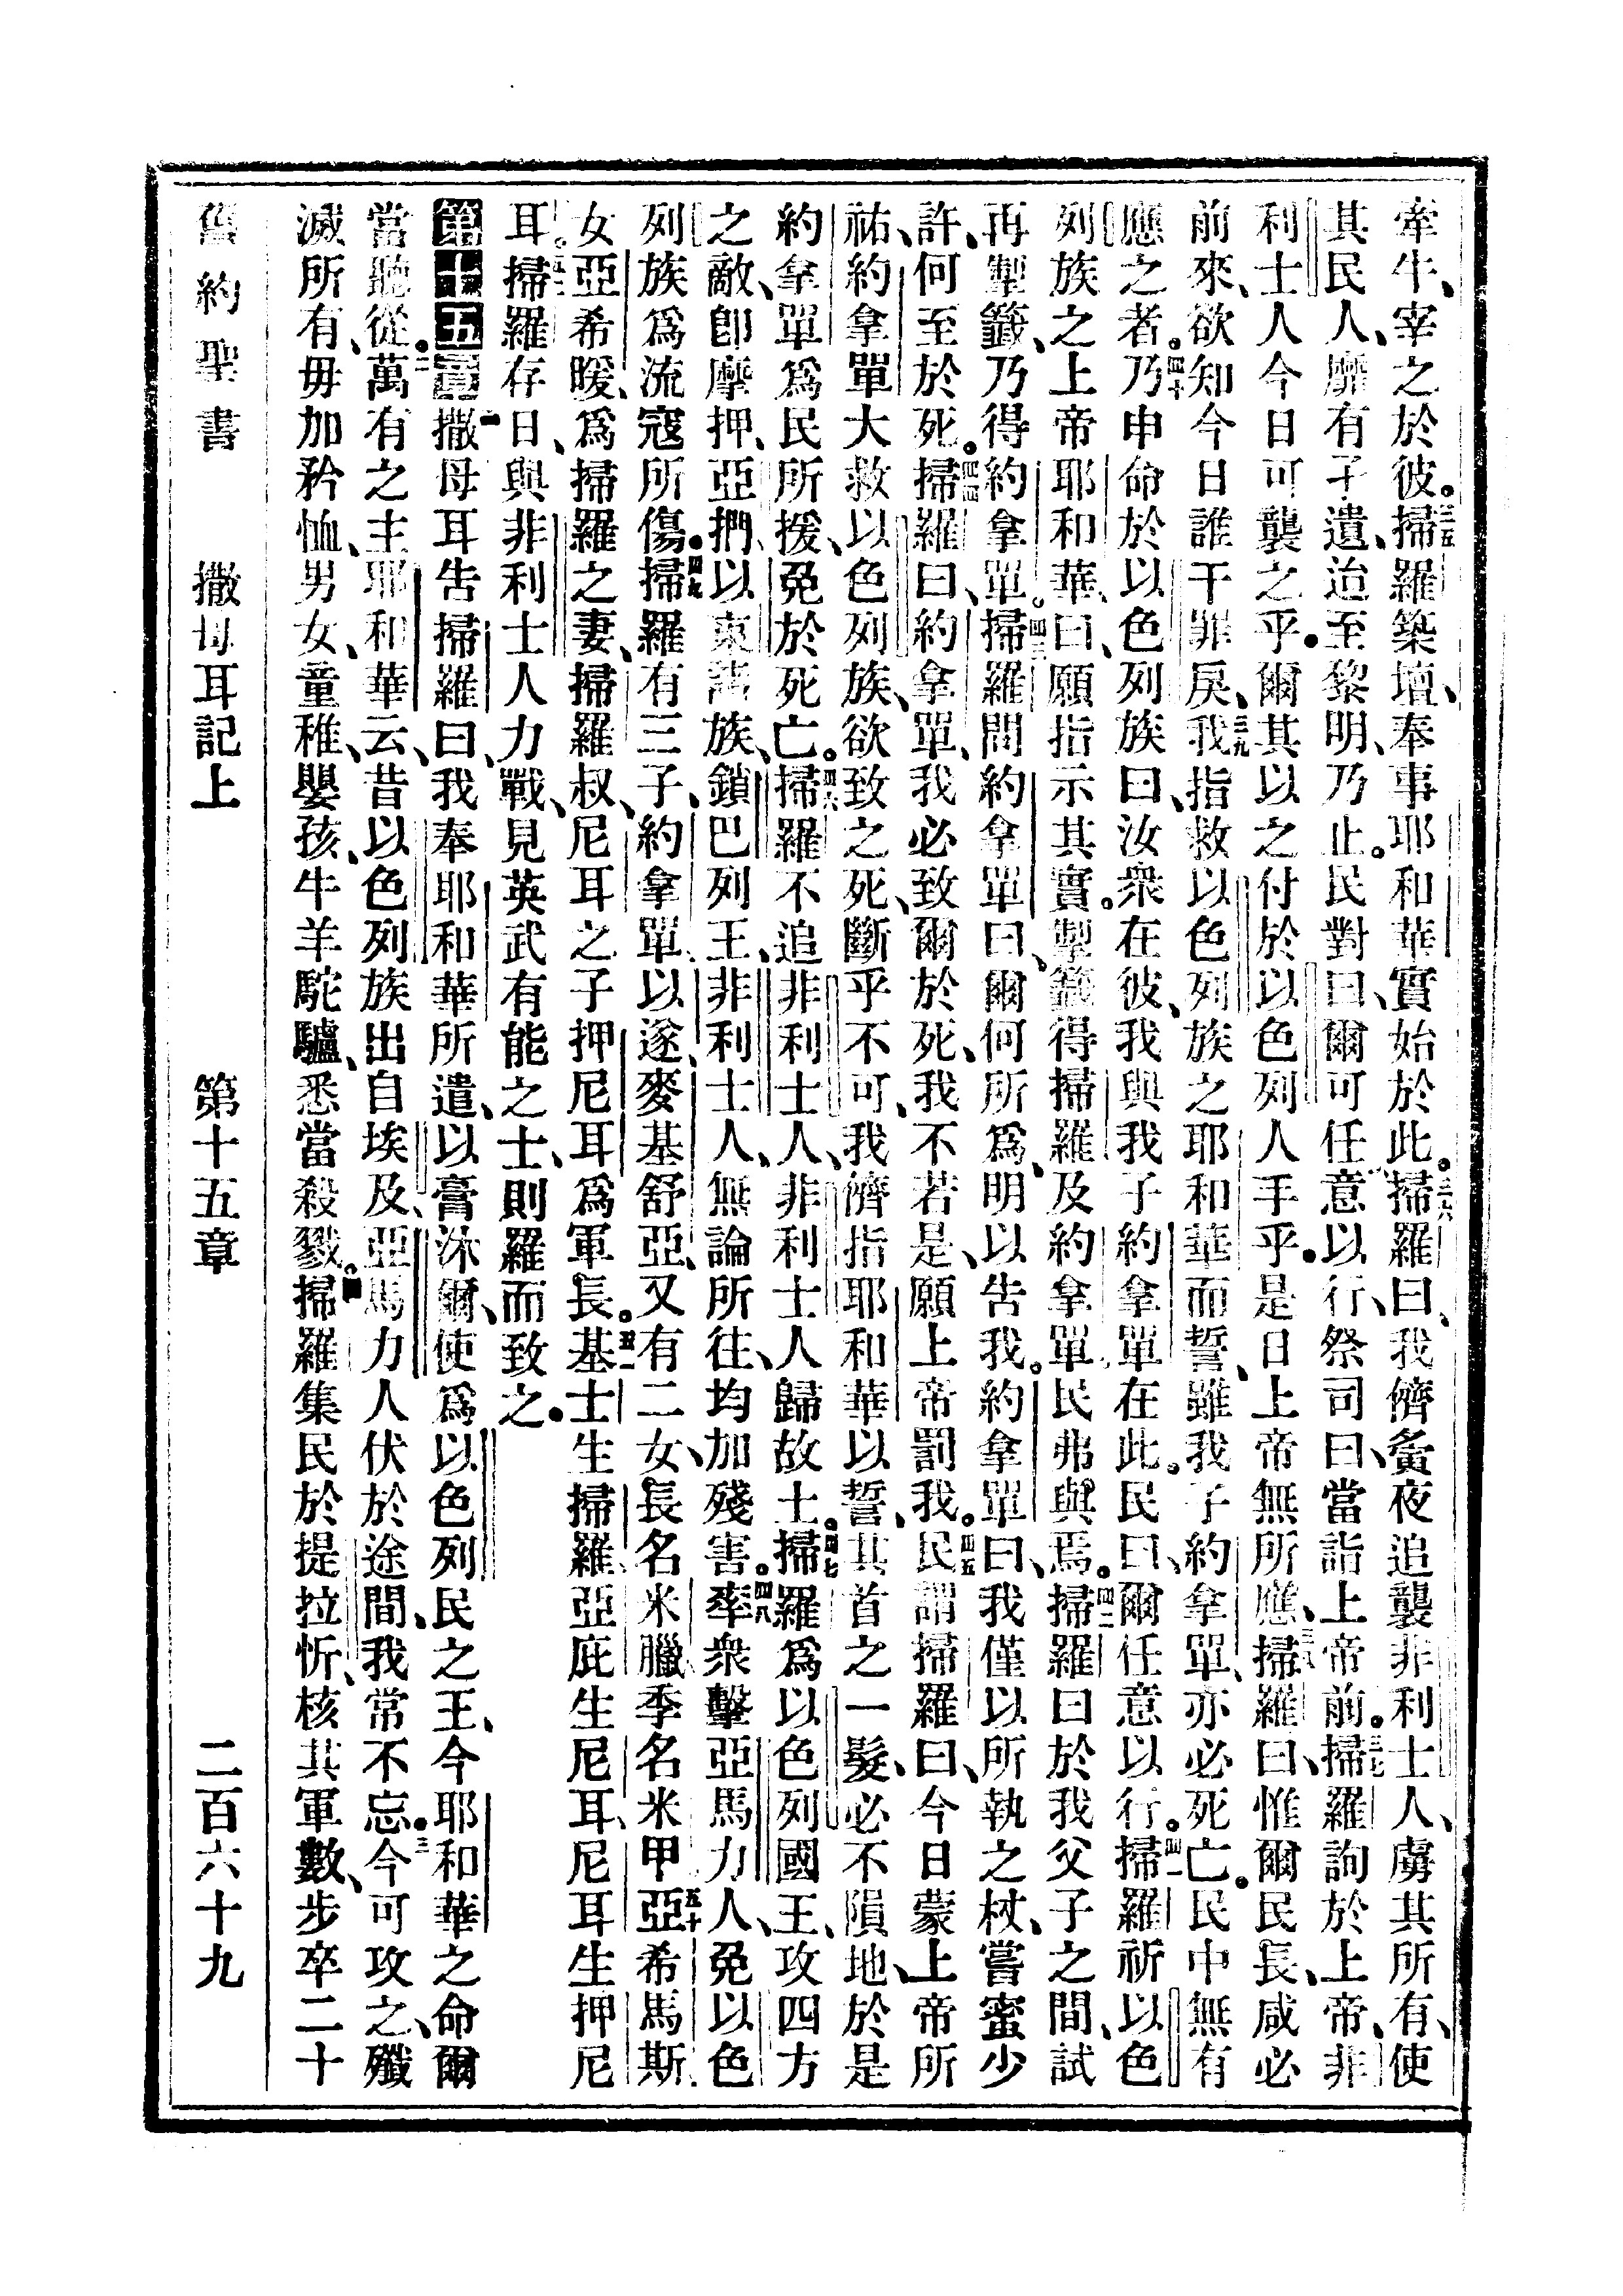 牽牛、宰之於彼。三五掃羅築壇、奉事耶和華、實始於此。三六掃羅曰、我儕夤夜追襲非利士人、虜其所有、使
其民人、靡有孑遺、迨至黎明、乃止。民對曰、爾可任意以行、祭司曰、當詣上帝前。三七掃羅詢於上帝、非
利士人今日可襲之乎。爾其以之付於以色列人手乎。是日上帝無所應、三八掃羅曰、惟爾民長、咸必
前來、欲知今日誰干罪戾、三九我指救以色列族之耶和華而誓、雖我子約拿單、亦必死亡。民中無有
應之者。四十乃申命於以色列族曰、汝衆在彼、我與我子約拿單在此。民曰、爾任意以行。四一掃羅祈以色
列族之上帝耶和華、曰、願指示其實。掣籤得掃羅及約拿單、民弗與焉。四二掃羅曰於我父子之間、試
再掣籤、乃得約拿單。四三掃羅問約拿單曰、爾何所爲、明以告我。約拿單曰、我僅以所執之杖、嘗蜜少
許、何至於死。四四掃羅曰、約拿單、我必致爾於死、我不若是、願上帝罰我。四五民謂掃羅曰、今日蒙上帝所
祐、約拿單大救以色列族、欲致之死、斷乎不可、我儕指耶和華以誓、其首之一髮、必不隕地、於是
約拿單爲民所援、免於死亡。四六掃羅不追非利士人、非利士人歸故土。四七掃羅爲以色列國王、攻四方
之敵、卽摩押、亞捫、以東諸族、鎖巴列王、非利士人、無論所往、均加殘害。四八率衆擊亞馬力人、免以色
列族爲流寇所傷。四九掃羅有三子、約拿單、以遂、麥基舒亞、又有二女、長名米臘、季名米甲、五十亞希馬斯
女亞希暖、爲掃羅之妻、掃羅叔、尼耳之子押尼耳爲軍長。五一基士生掃羅、亞庇生尼耳、尼耳生押尼
耳。五二掃羅存日、與非利士人力戰、見英武有能之士、則羅而致之。
第十五章 一撒母耳告掃羅曰、我奉耶和華所遣、以膏沐爾、使爲以色列民之王、今耶和華之命爾
當聽從。二萬有之主耶和華云、昔以色列族出自埃及、亞馬力人伏於途間、我常不忘。三今可攻之、殲
滅所有、毋加矜恤、男女、童稚、嬰孩、牛羊駝驢、悉當殺戮。四掃羅集民於提拉忻、核其軍數、步卒二十
舊約聖書 撒母耳記上 第十五章 二百六十九